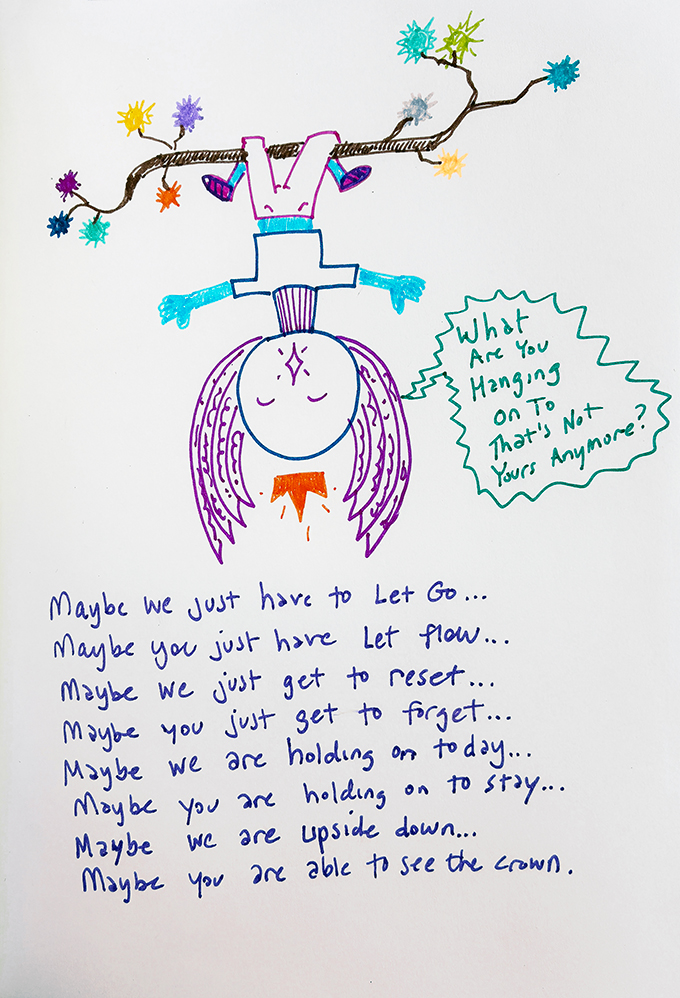 What
Are You
Hanging
on To
That's Not
Yours Anymore?
Maybe we just have to Let Go...
Maybe you just have Let flow...
Maybe we just get to reset...
Maybe you just get to forget...
Maybe we are holding on today...
Maybe you are holding on to stay...
Maybe we are upside down...
Maybe you are able to see the crown.